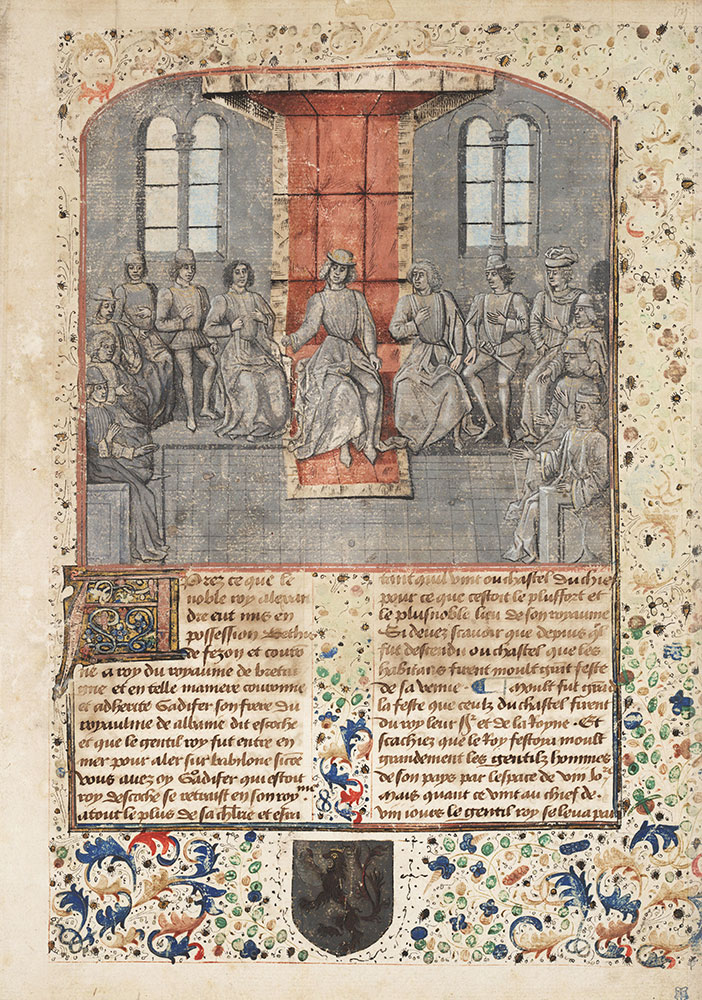 Aprez ce que le
noble roy alexan
dre eut mis en
possession Bethis
de fezon et couro
ne a roy du royaume de bretai
gne et en telle maniere couronne
et adherite Gadifer son frere du
royaulme de albanie dit escoche
et que le gentil roy fut entre en
mer pour aler sur babilone sicōe
vous avez oy Gadifer qui estoit
roy descoche se retraist en son roy
atout le plus de sa

tant quil vint ou chastel du chief
pour ce que cestoit le plus fort et
le plus noble lieu de son royaume
Si devez scavoir que depuis ql
fut descendu ou chastel que les
habitans firent moult grāt feste
de sa venue moult fut grād
la feste que ceulz du chastel firent
du roy leur sr et de la Royne Et
scachiez que le Roy festoya moult
grandement les gentilz hommes
de son pays par lespace de
Mais quant ce vint au chief de
jours le gentil roy se leva par